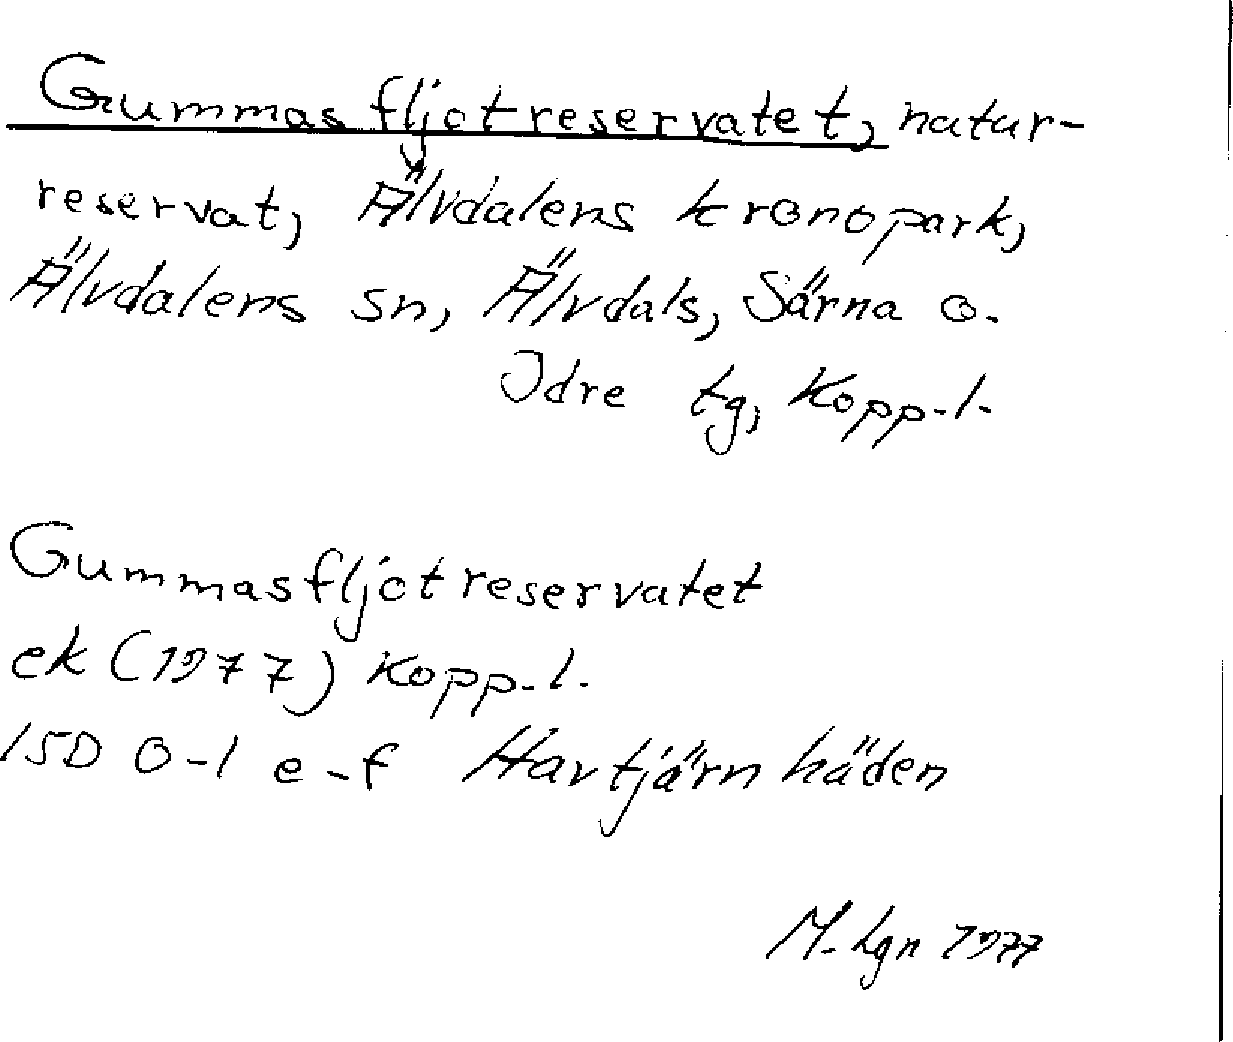 Gummasfljotreservatet, natur-
reservat, Älvdalens kronopark,
Älvdalens sn, Älvdals, Särna o.
Idre tg, Kopp.l.
Gummasfljotreservatet
ek (1977) Kopp.l.
15D 0-1 e-f Havtjärnhäden
M. Lgn 1977